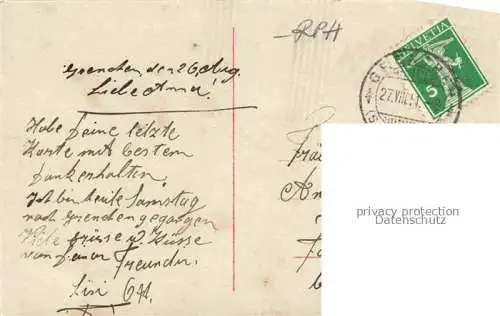 RPH
Grenchen den 26 Aug.
Liebe Anna!
Habe deine letzte
Karte mit bestem
Dank erhalten
Ich bin heute Samstag
nach Grenchen gegangen
Viele Grüsse u Küsse
von deiner Freundin
HELVETIA
5
27.VIII.
privacy protection
Datenschutz